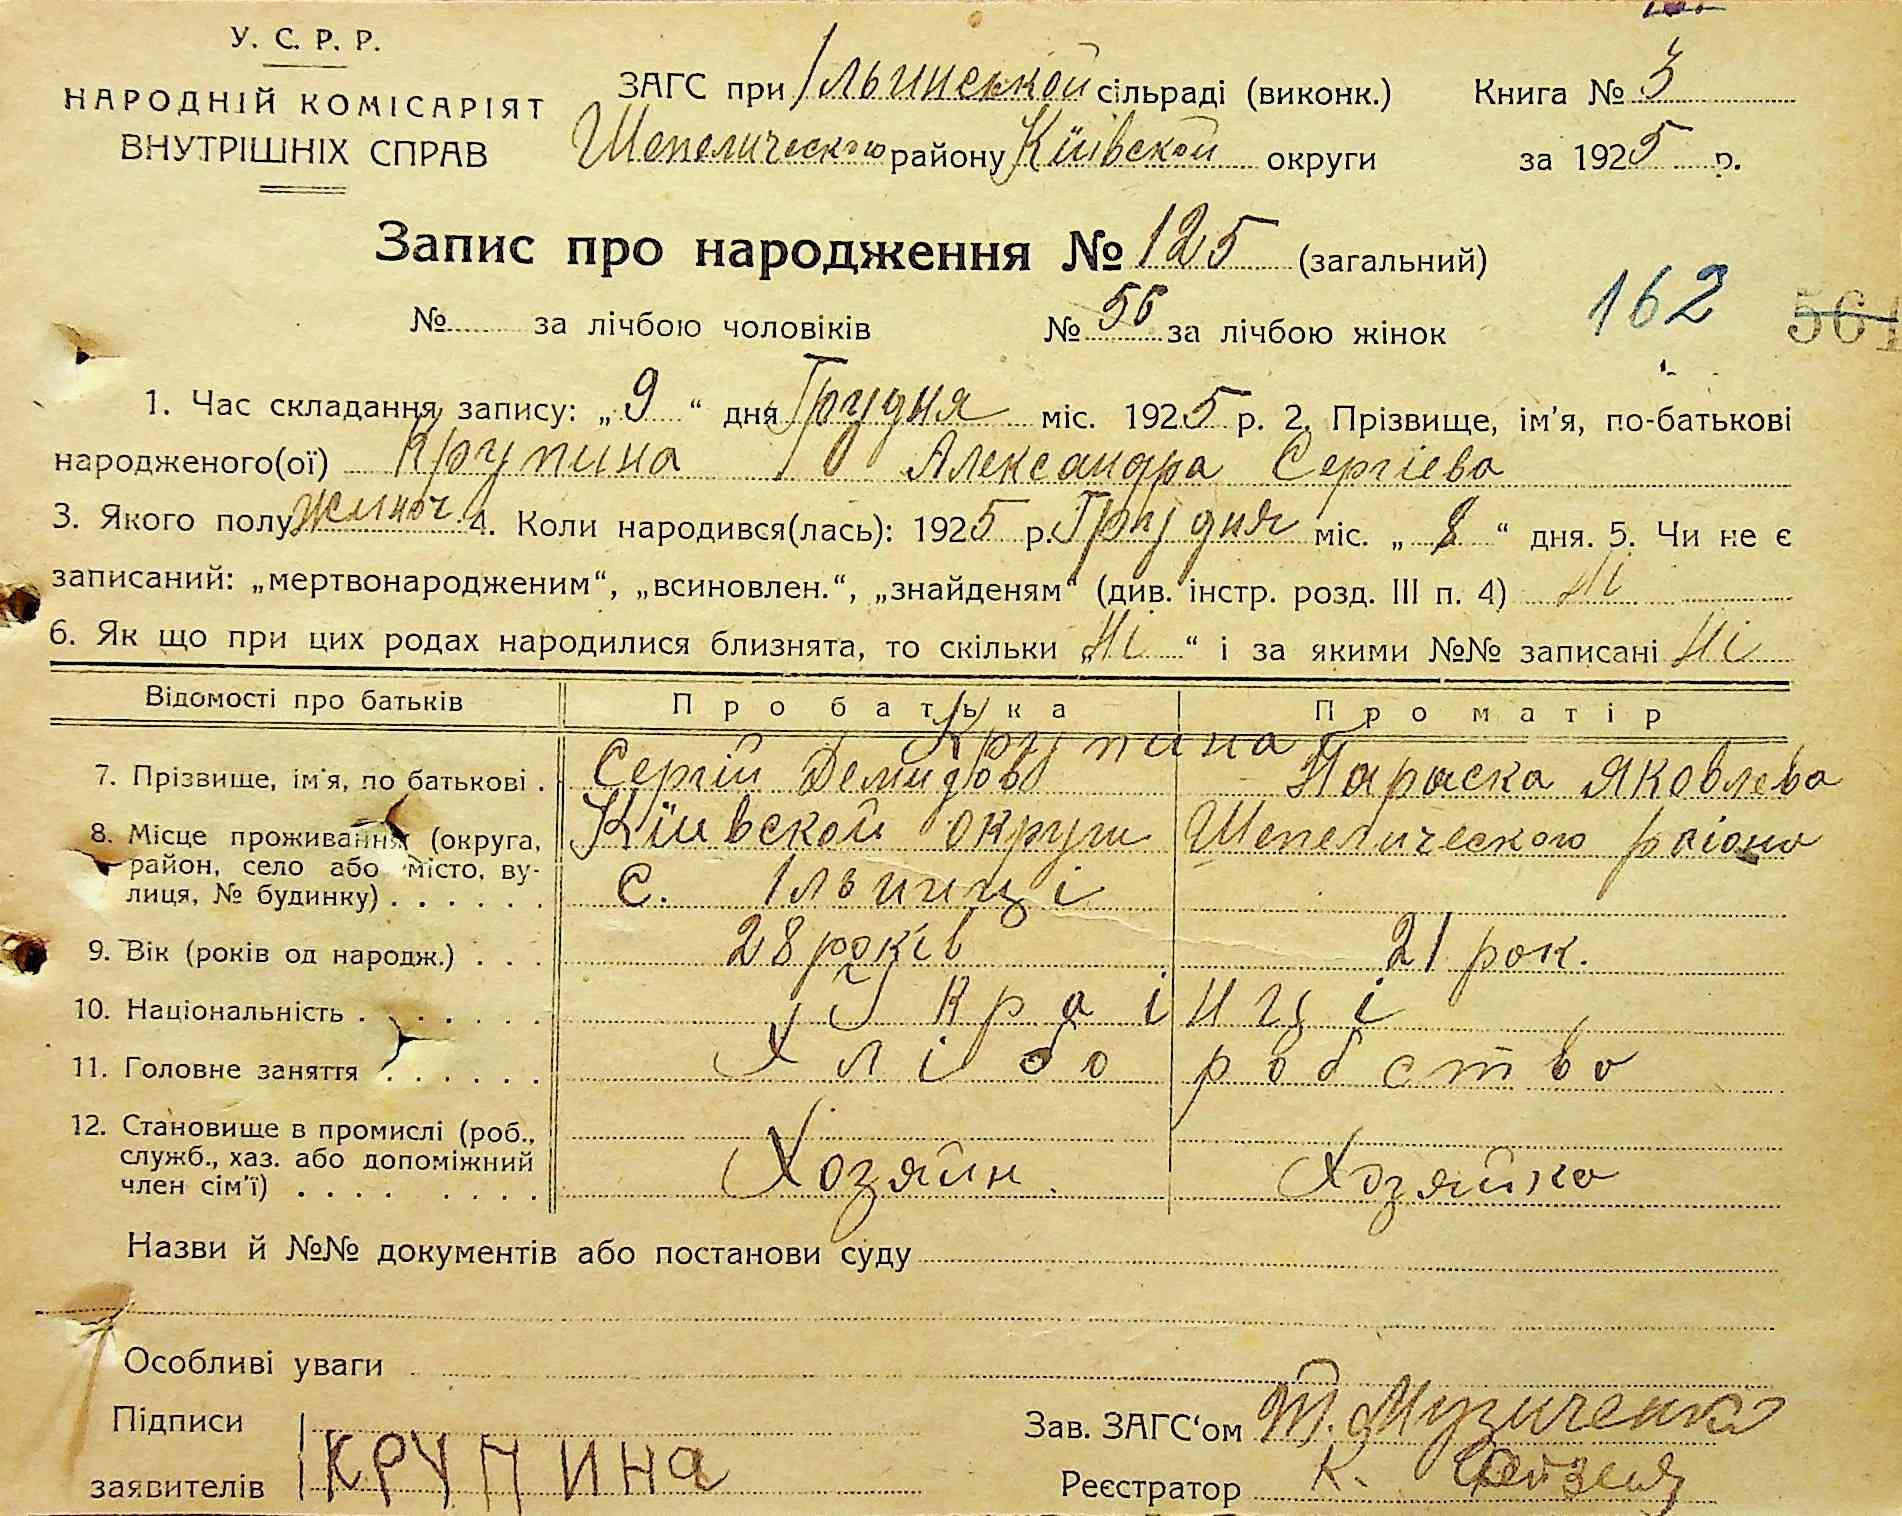 У. С. Р. Р.
НАРОДНІЙ КОМІСАРІЯТ
ВНУТРІШНІХ СПРАВ
ЗАГС при Ільинської сільраді (виконк.)
Шепелического району Київской округи
Книга № 3
за 1925 р.
Запис про народження № 125 (загальний)
№ за лічбою чоловіків № 56 за лічбою жінок
162 561
1. Час складання запису: „ 9 “ дня Грудня міс. 1925 р. 2. Прізвище, ім'я, по-батькові
народженого(ої) Крупина Александра Сергієва
3. Якого полу жіноч. 4. Коли народився(лась): 1925 р. Грудня міс. „ 8 “ дня. 5. Чи не є
записаний: „мертвонародженим“, „всиновлен.“, „знайденям“ (див. інстр. розд. III п. 4) Ні
6. Як що при цих родах народилися близнята, то скільки „ Ні “ і за якими №№ записані Ні
Відомості про батьків Про батька Про матір
Крупина
7. Прізвище, ім'я, по батькові . Сергій Демидов Параска Яковлева
8. Місце проживання (округа, Київской округи Шепелического раіона
район, село або місто, ву-
лиця, № будинку) . . . . . . с. Ільинці
9. Вік (років од народж.) . . . 28 років 21 рок.
10. Національність . . . . . . . Українці
11. Головне заняття . . . . . . Хліборобство
12. Становище в промислі (роб.,
служб., хаз. або допоміжний
член сім'ї) . . . . . . . . Хозяин. Хозяйка
Назви й №№ документів або постанови суду
Особливі уваги
Підписи
заявителів КРУПИНа
Зав. ЗАГС‘ом Т. Музиченко
Реєстратор К.